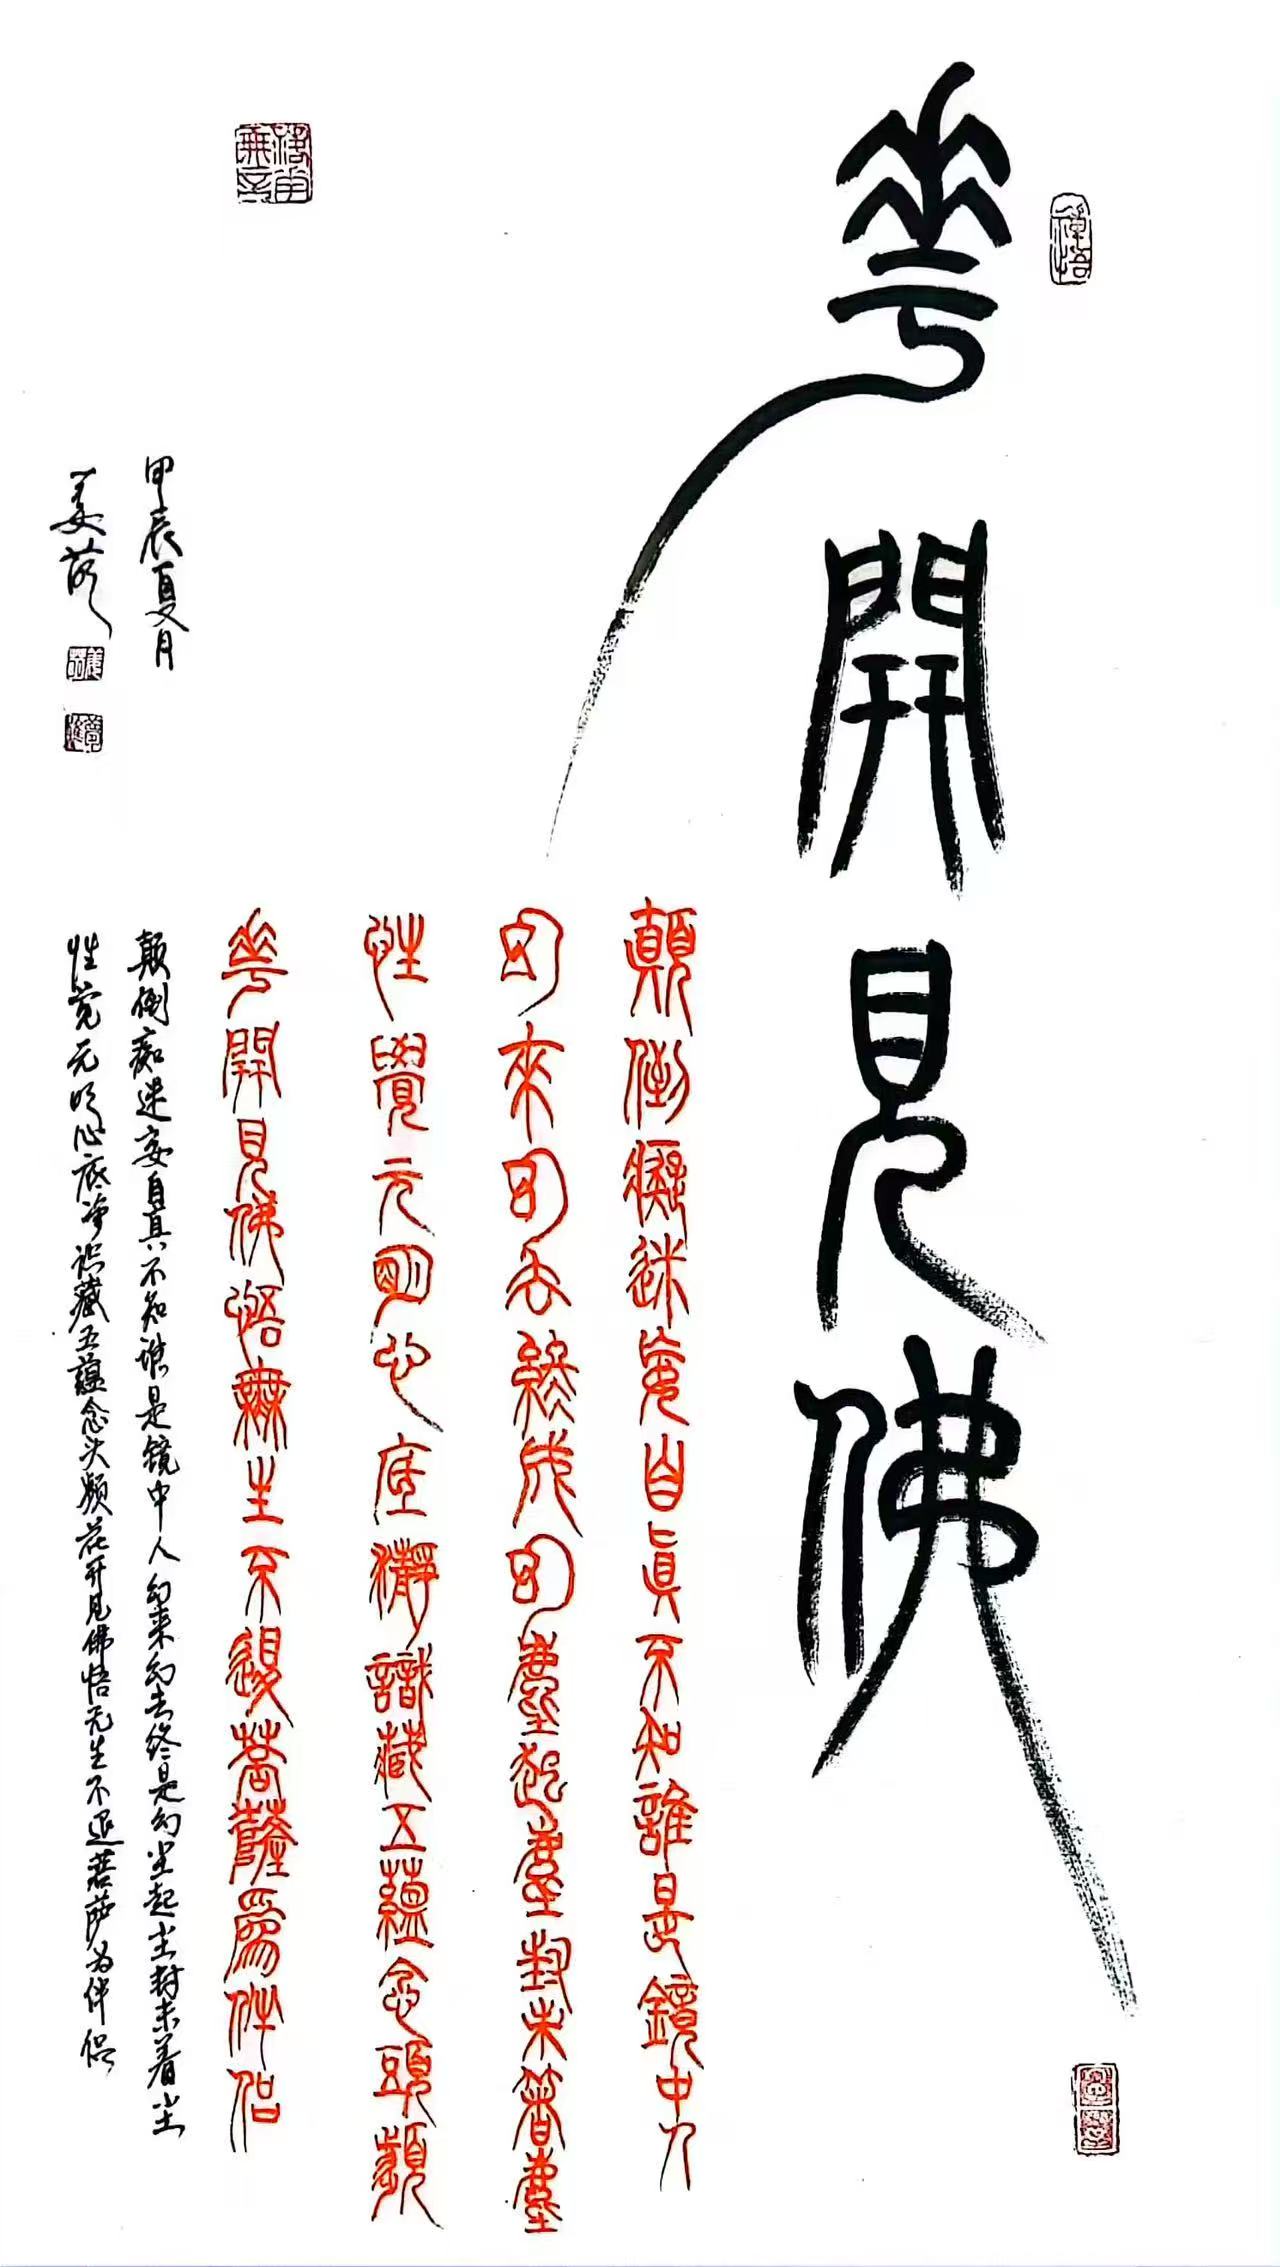 華開見佛
禪悟
顛倒癡迷妄自眞不知誰是鏡中人
幻來幻去終成幻塵起塵封未著塵
性覺元明心底瀞識藏五蘊念頭頻
華開見佛悟無生不退菩薩爲伴侶
颠倒痴迷妄自真不知谁是镜中人幻来幻去终是幻尘起尘封未着尘
性觉元明心底净识藏五蕴念头频花开见佛悟无生不退菩萨为伴侣
甲辰夏月
姜